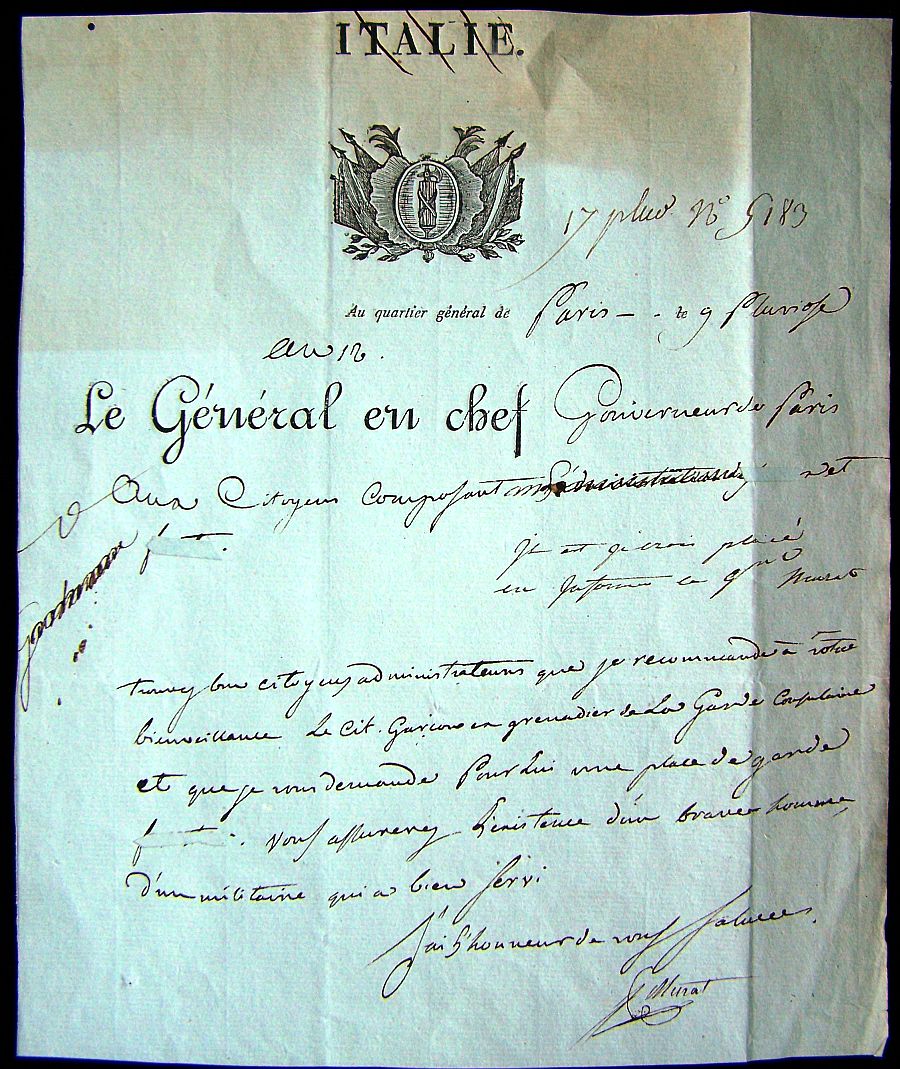 ITALIE.
17 pluv N° 5183
Au quartier général de Paris — - le 9 Pluviose
An 12.
Le Général en chef Gouverneur de Paris
Aux Citoyens Composant
f t.
Il est je crois placé
en informer le gnal Murat
trouvez bon citoyens administrateurs que je recommande à votre
bienveillance Le Cit. Garçon en grenadier de La Garde Consulaire
et que je vous demande Pour Lui une place de garde
f t. vous assurerez L'existence d'un brave homme
d'un militaire qui a bien servi
J'ai L'honneur de vous saluer.
Murat